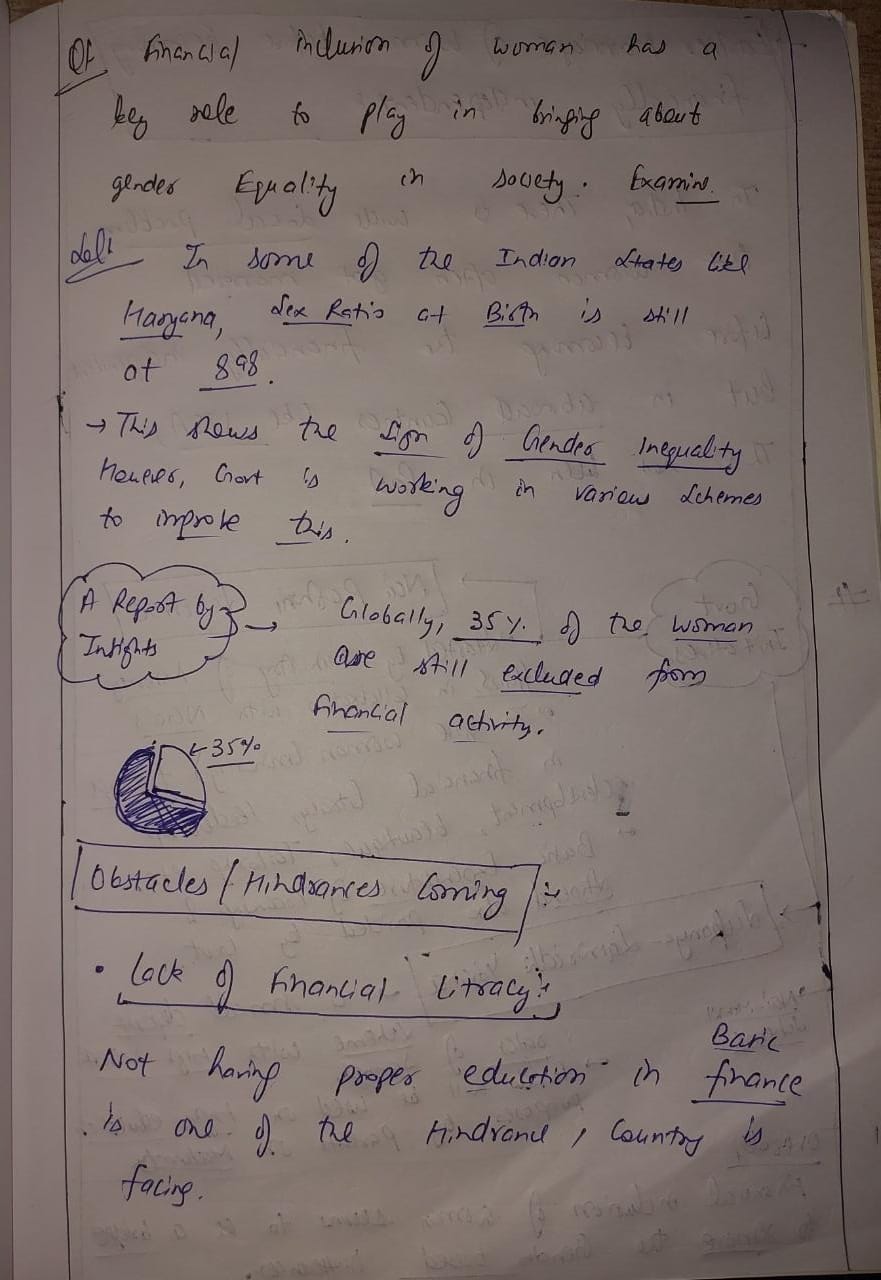 Q1. Financial inclusion of woman has a
key role to play in bringing about
gender Equality in society. Examine.
Sol: In some of the Indian States like
Haryana, Sex Ratio at Birth is still
at 898.
→ This shows the sign of Gender Inequality
However, Govt is working in various Schemes
to improve this.
A Report by Insights → Globally, 35% of the woman
are still excluded from
financial activity.
35%
Obstacles / Hindrances Coming :-
• Lack of Financial Litracy :-
Not having proper eduction in Basic finance
is one of the Hindrance, Country is
facing.